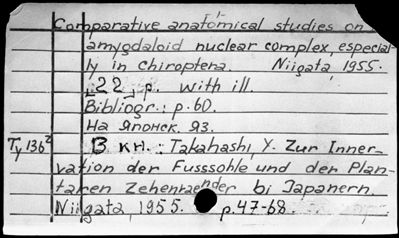 Comparative anatomical studies on
amygdaloid nuclear complex, especial-
ly in chiroptera. Niigata, 1955.
[22] p. with ill.
Bibliogr.: p. 60.
На японск. яз.
Ty 136² В кн.: Takahashi, Y. Zur Inner-
vation der Fusssohle und der Plan-
taren Zehenraender bi Japanern.
Niigata, 1955. p. 47-68.